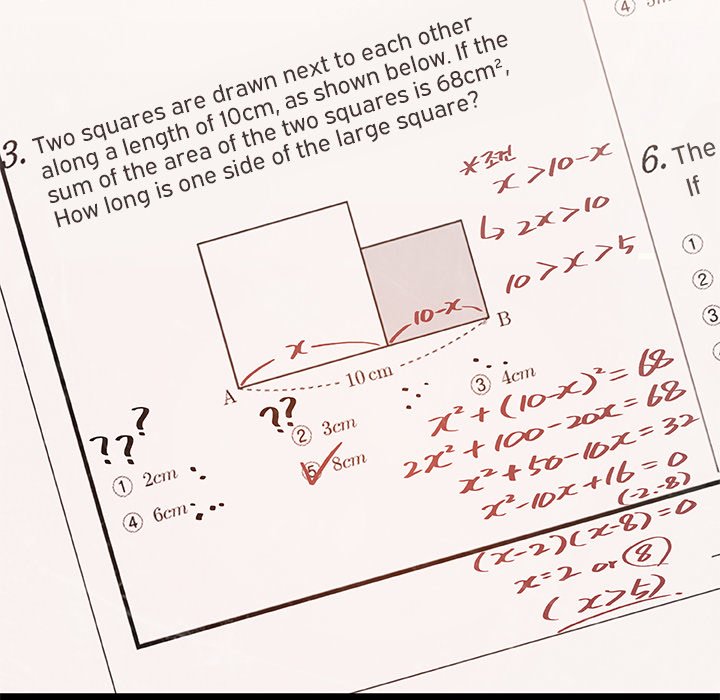 3. Two squares are drawn next to each other
along a length of 10cm, as shown below. If the
sum of the area of the two squares is 68cm²,
How long is one side of the large square?
*조건
x > 10-x
↳ 2x > 10
10 > x > 5
x
10-x
A
10 cm
B
???
① 2cm
??
② 3cm
③ 4cm
④ 6cm
⑤ 8cm
x² + (10-x)² = 68
2x² + 100 - 20x = 68
x² + 50 - 10x = 32
x² - 10x + 16 = 0
(-2. -8)
(x-2)(x-8) = 0
x = 2 or 8
(x > 5).
④
6. The
If
①
②
③